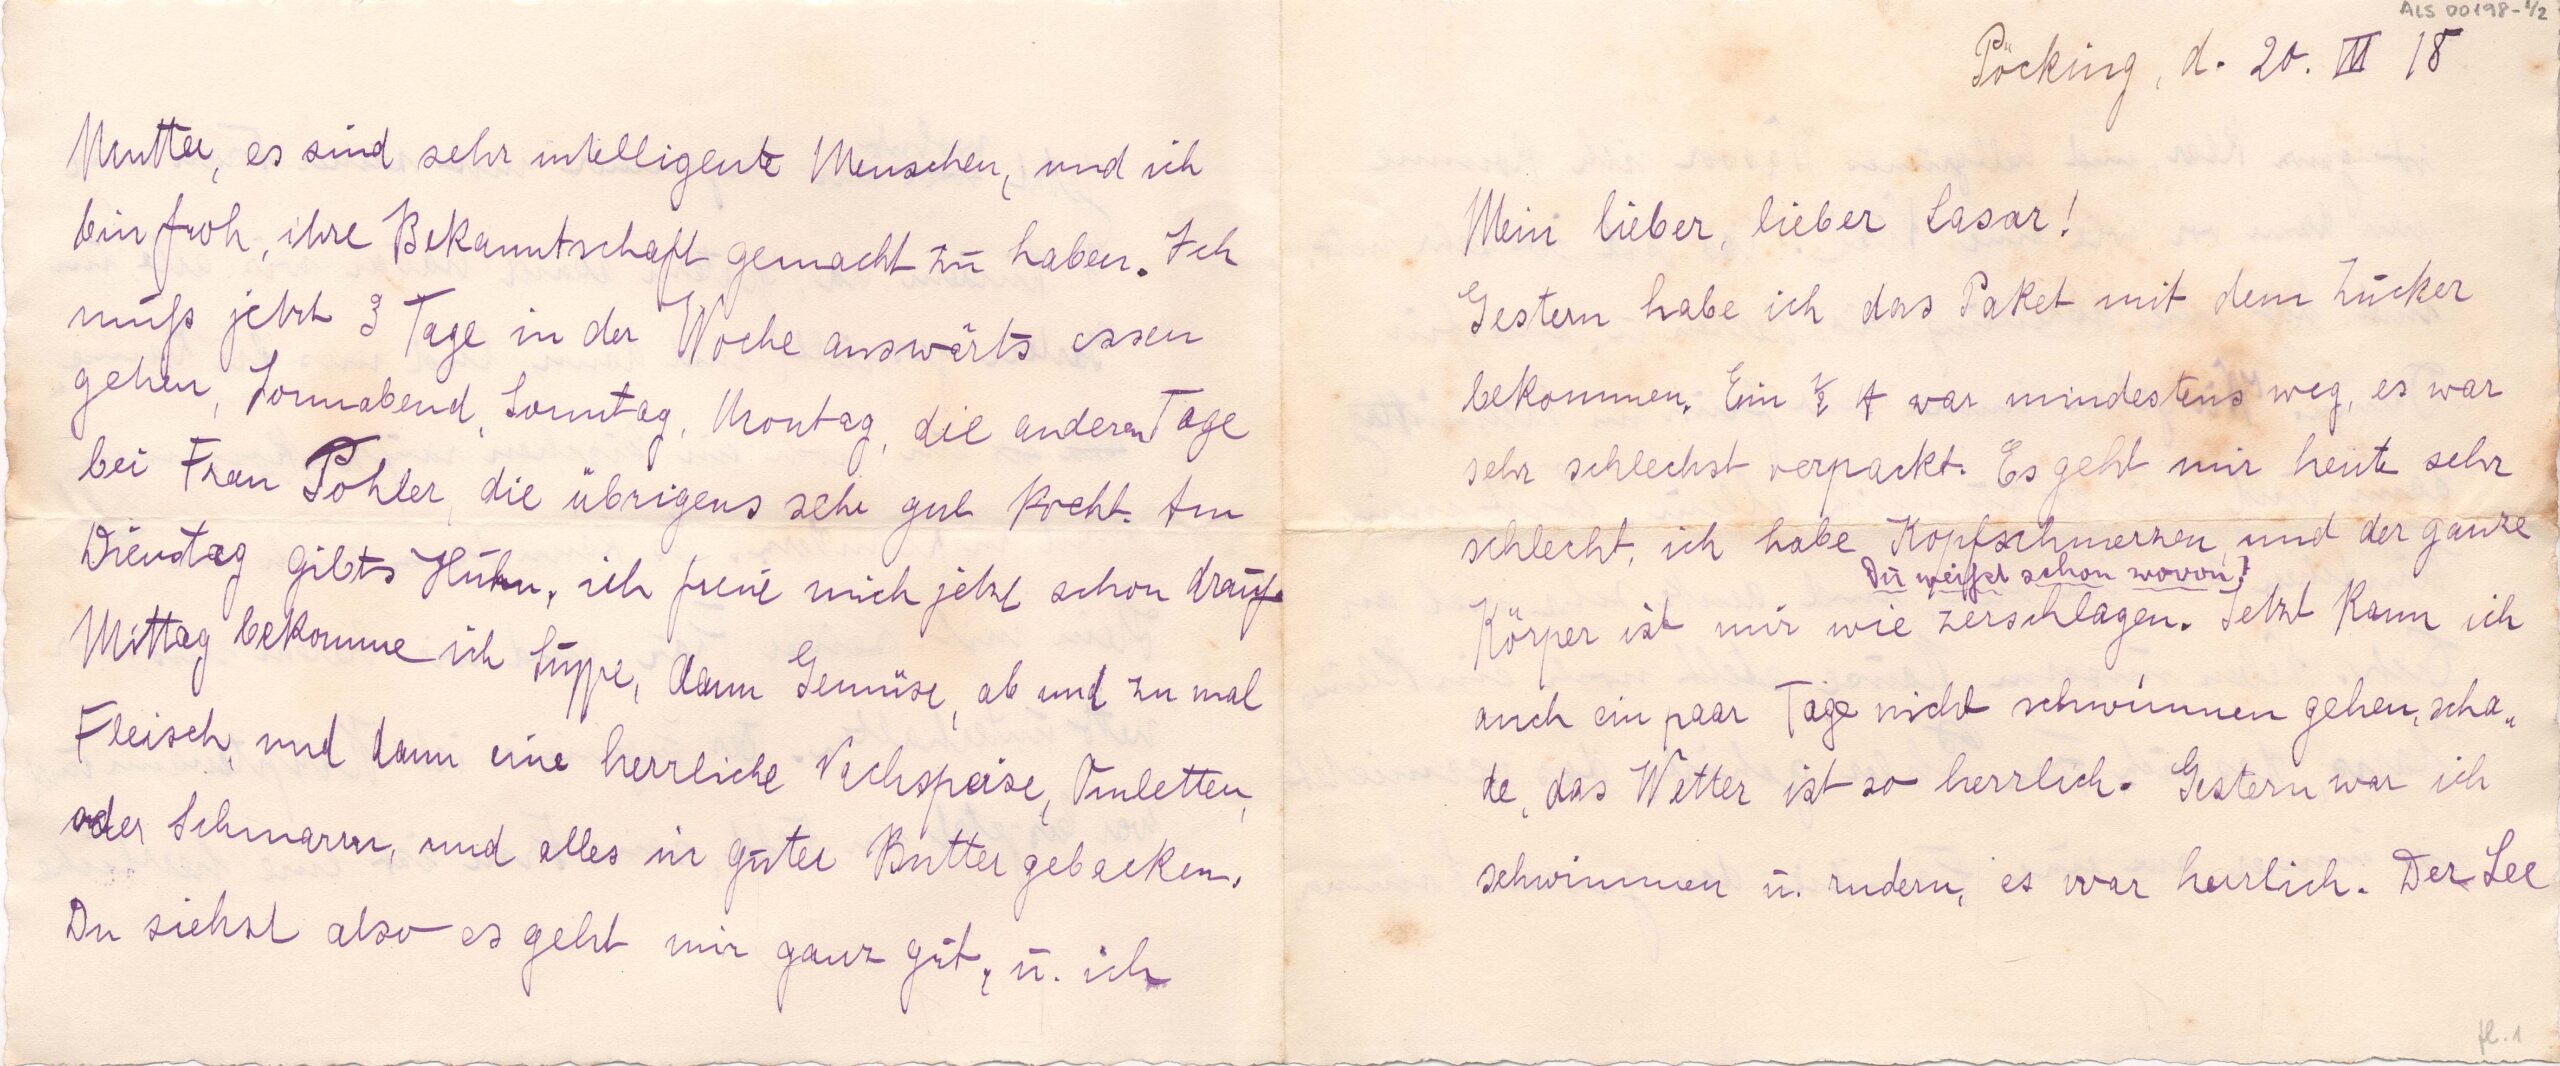 ALS 00198-1/2
Pöcking, d. 20. VI 18
Mein lieber, lieber Lasar!
Gestern habe ich das Paket mit dem Zucker
bekommen. Ein ½ ℔ war mindestens weg, es war
sehr schlechst verpackt. Es geht mir heute sehr
schlecht, ich habe Kopfschmerzen, und der ganze
Du weißt schon wovon!
Körper ist mir wie zerschlagen. Jetzt kann ich
auch ein paar Tage nicht schwimmen gehen, scha„
de, das Wetter ist so herrlich. Gestern war ich
schwimmen u. rudern, es war herrlich. Der See
fl. 1
Mutter, es sind sehr intelligente Menschen, und ich
bin froh, ihre Bekanntschaft gemacht zu haben. Ich
muß jetzt 3 Tage in der Woche auswärts essen
gehen, Sonnabend, Sonntag, Montag, die anderen Tage
bei Frau Pohler, die übrigens sehr gut kocht. Am
Dienstag gibts Huhn, ich freue mich jetzt schon drauf.
Mittag bekomme ich Suppe, dann Gemüse, ab und zu mal
Fleisch, und dann eine herrliche Nachspeise, Omletten,
oder Schmarrn, und alles in guter Butter gebacken.
Du siehst also es geht mir ganz gut, u. ich